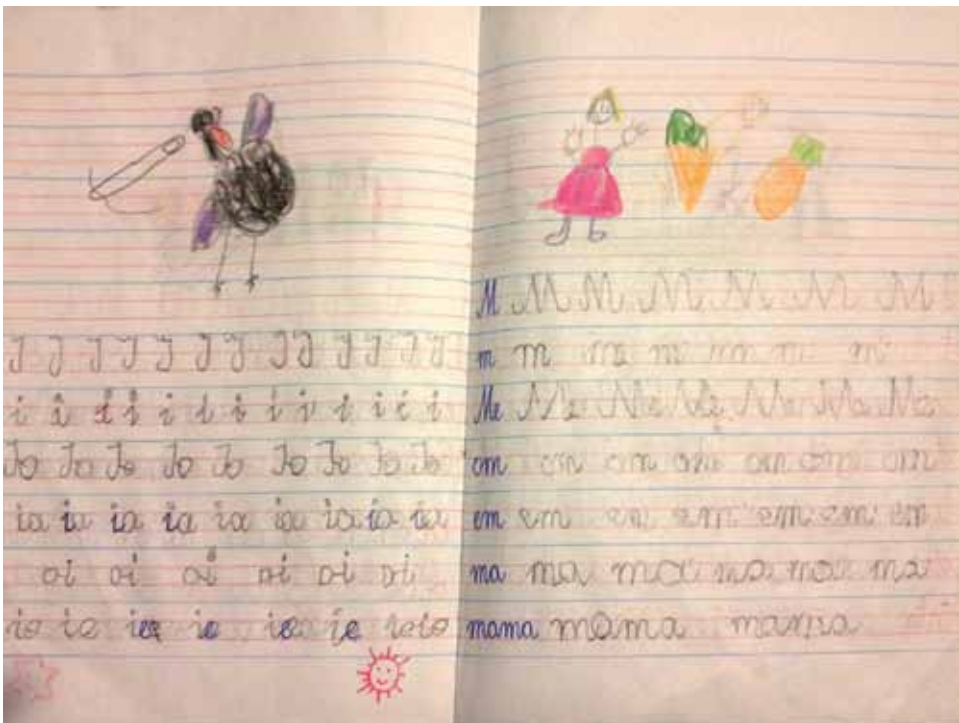 J J J J J J J J J J J J
i i i i i i i i i i i i i
Jo Jo Jo Jo Jo Jo Jo Jo Jo
ia ia ia ia ia ia ia ia ia
oi oi oi oi oi oi
io ie ie ie ie ie
M M M M M M M
m m m m m m m
Me Me Me Me Me Me Me
om om om om om om om
em em em em em em em
ma ma ma ma ma ma
mama mama mama